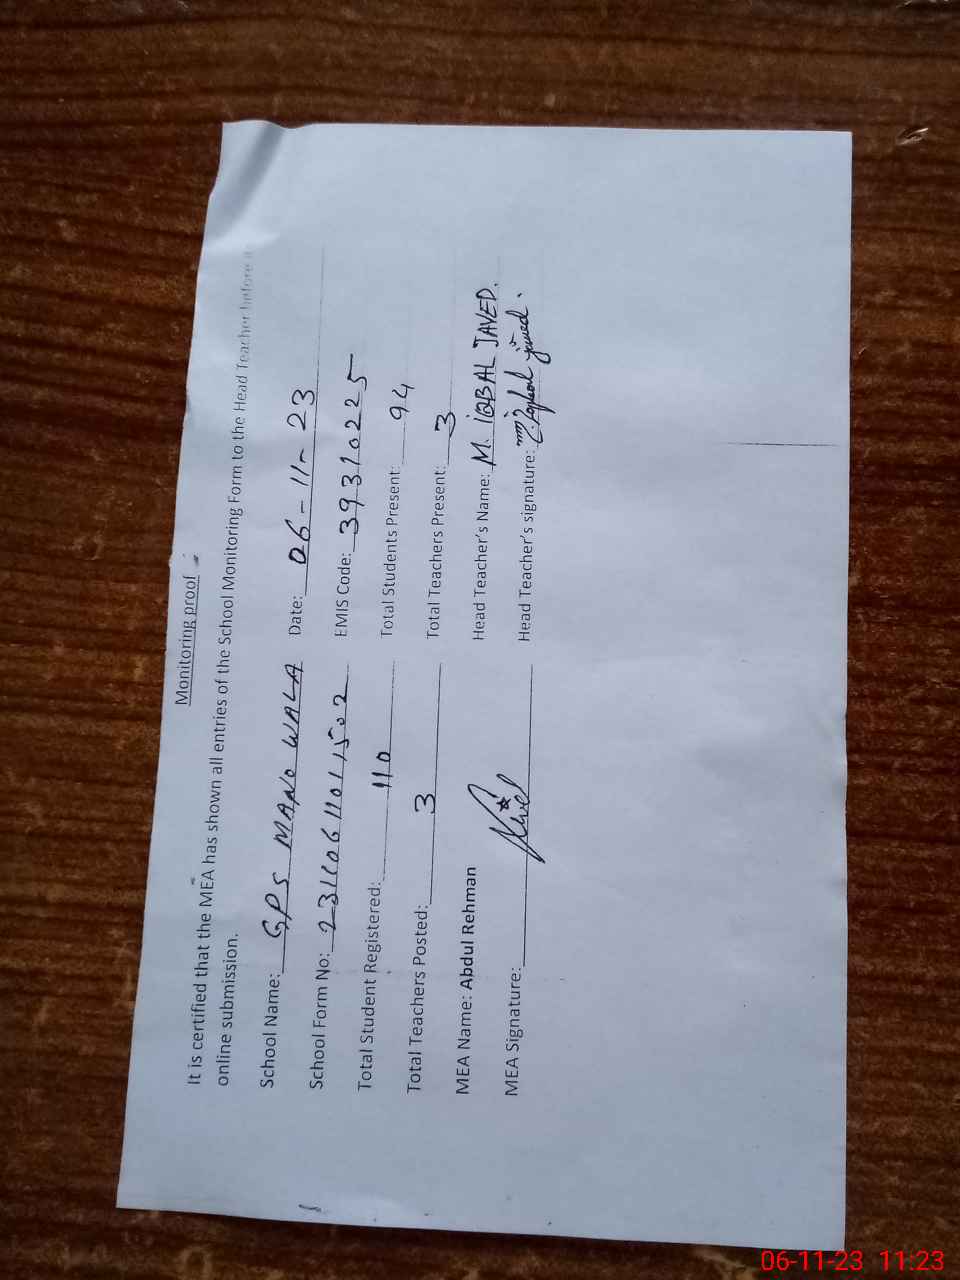 Monitoring proof
It is certified that the MEA has shown all entries of the School Monitoring Form to the Head Teacher before
online submission.
School Name: GPS MANO WALA Date: 06-11-23
School Form No: EMIS Code: 39310225
Total Student Registered: 110 Total Students Present: 94
Total Teachers Posted: 3 Total Teachers Present: 3
MEA Name: Abdul Rehman Head Teacher's Name: M. IQBAL JAVED.
MEA Signature: Head Teacher's signature:
06-11-23 11:23